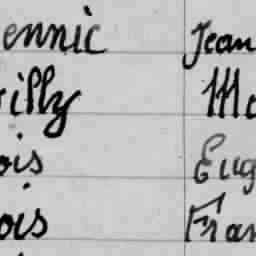 ennic Jean
illy Ma
ois Eug
ois Fran